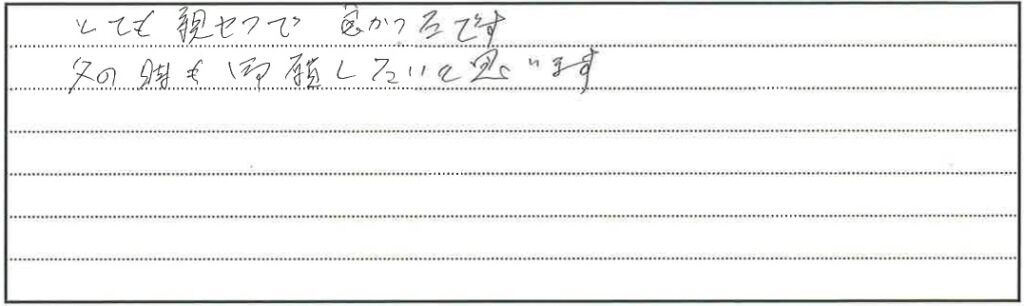 とても親セツで 良かったです
父の時も御願したいと思います